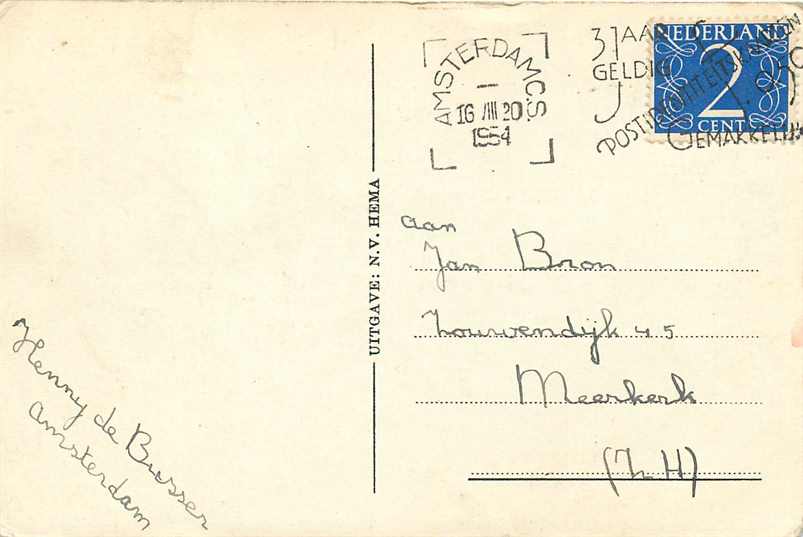 AMSTERDAM C.S
16 VIII 20
1954
3 JAAR
GELDIG
POSTIDENTITEITSKAARTEN
GEMAKKELIJK
NEDERLAND
2
CENT
UITGAVE: N.V. HEMA
aan
Jan Bron
Zouwendijk 45
Meerkerk
(Z H)
Henny de Busser
Amsterdam